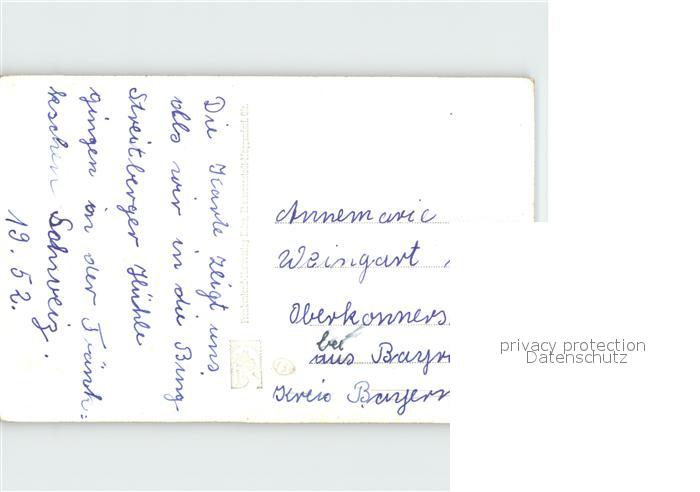 Die Karte zeigt uns
alls wir in die Bing
Streitberger Hühle
gingen in der Fränk:
kschen Schweiz.
19. 52.
Annemarie
Weingart
Oberkonners
bei
aus Bayr
Kreis Bayern
privacy protection
Datenschutz